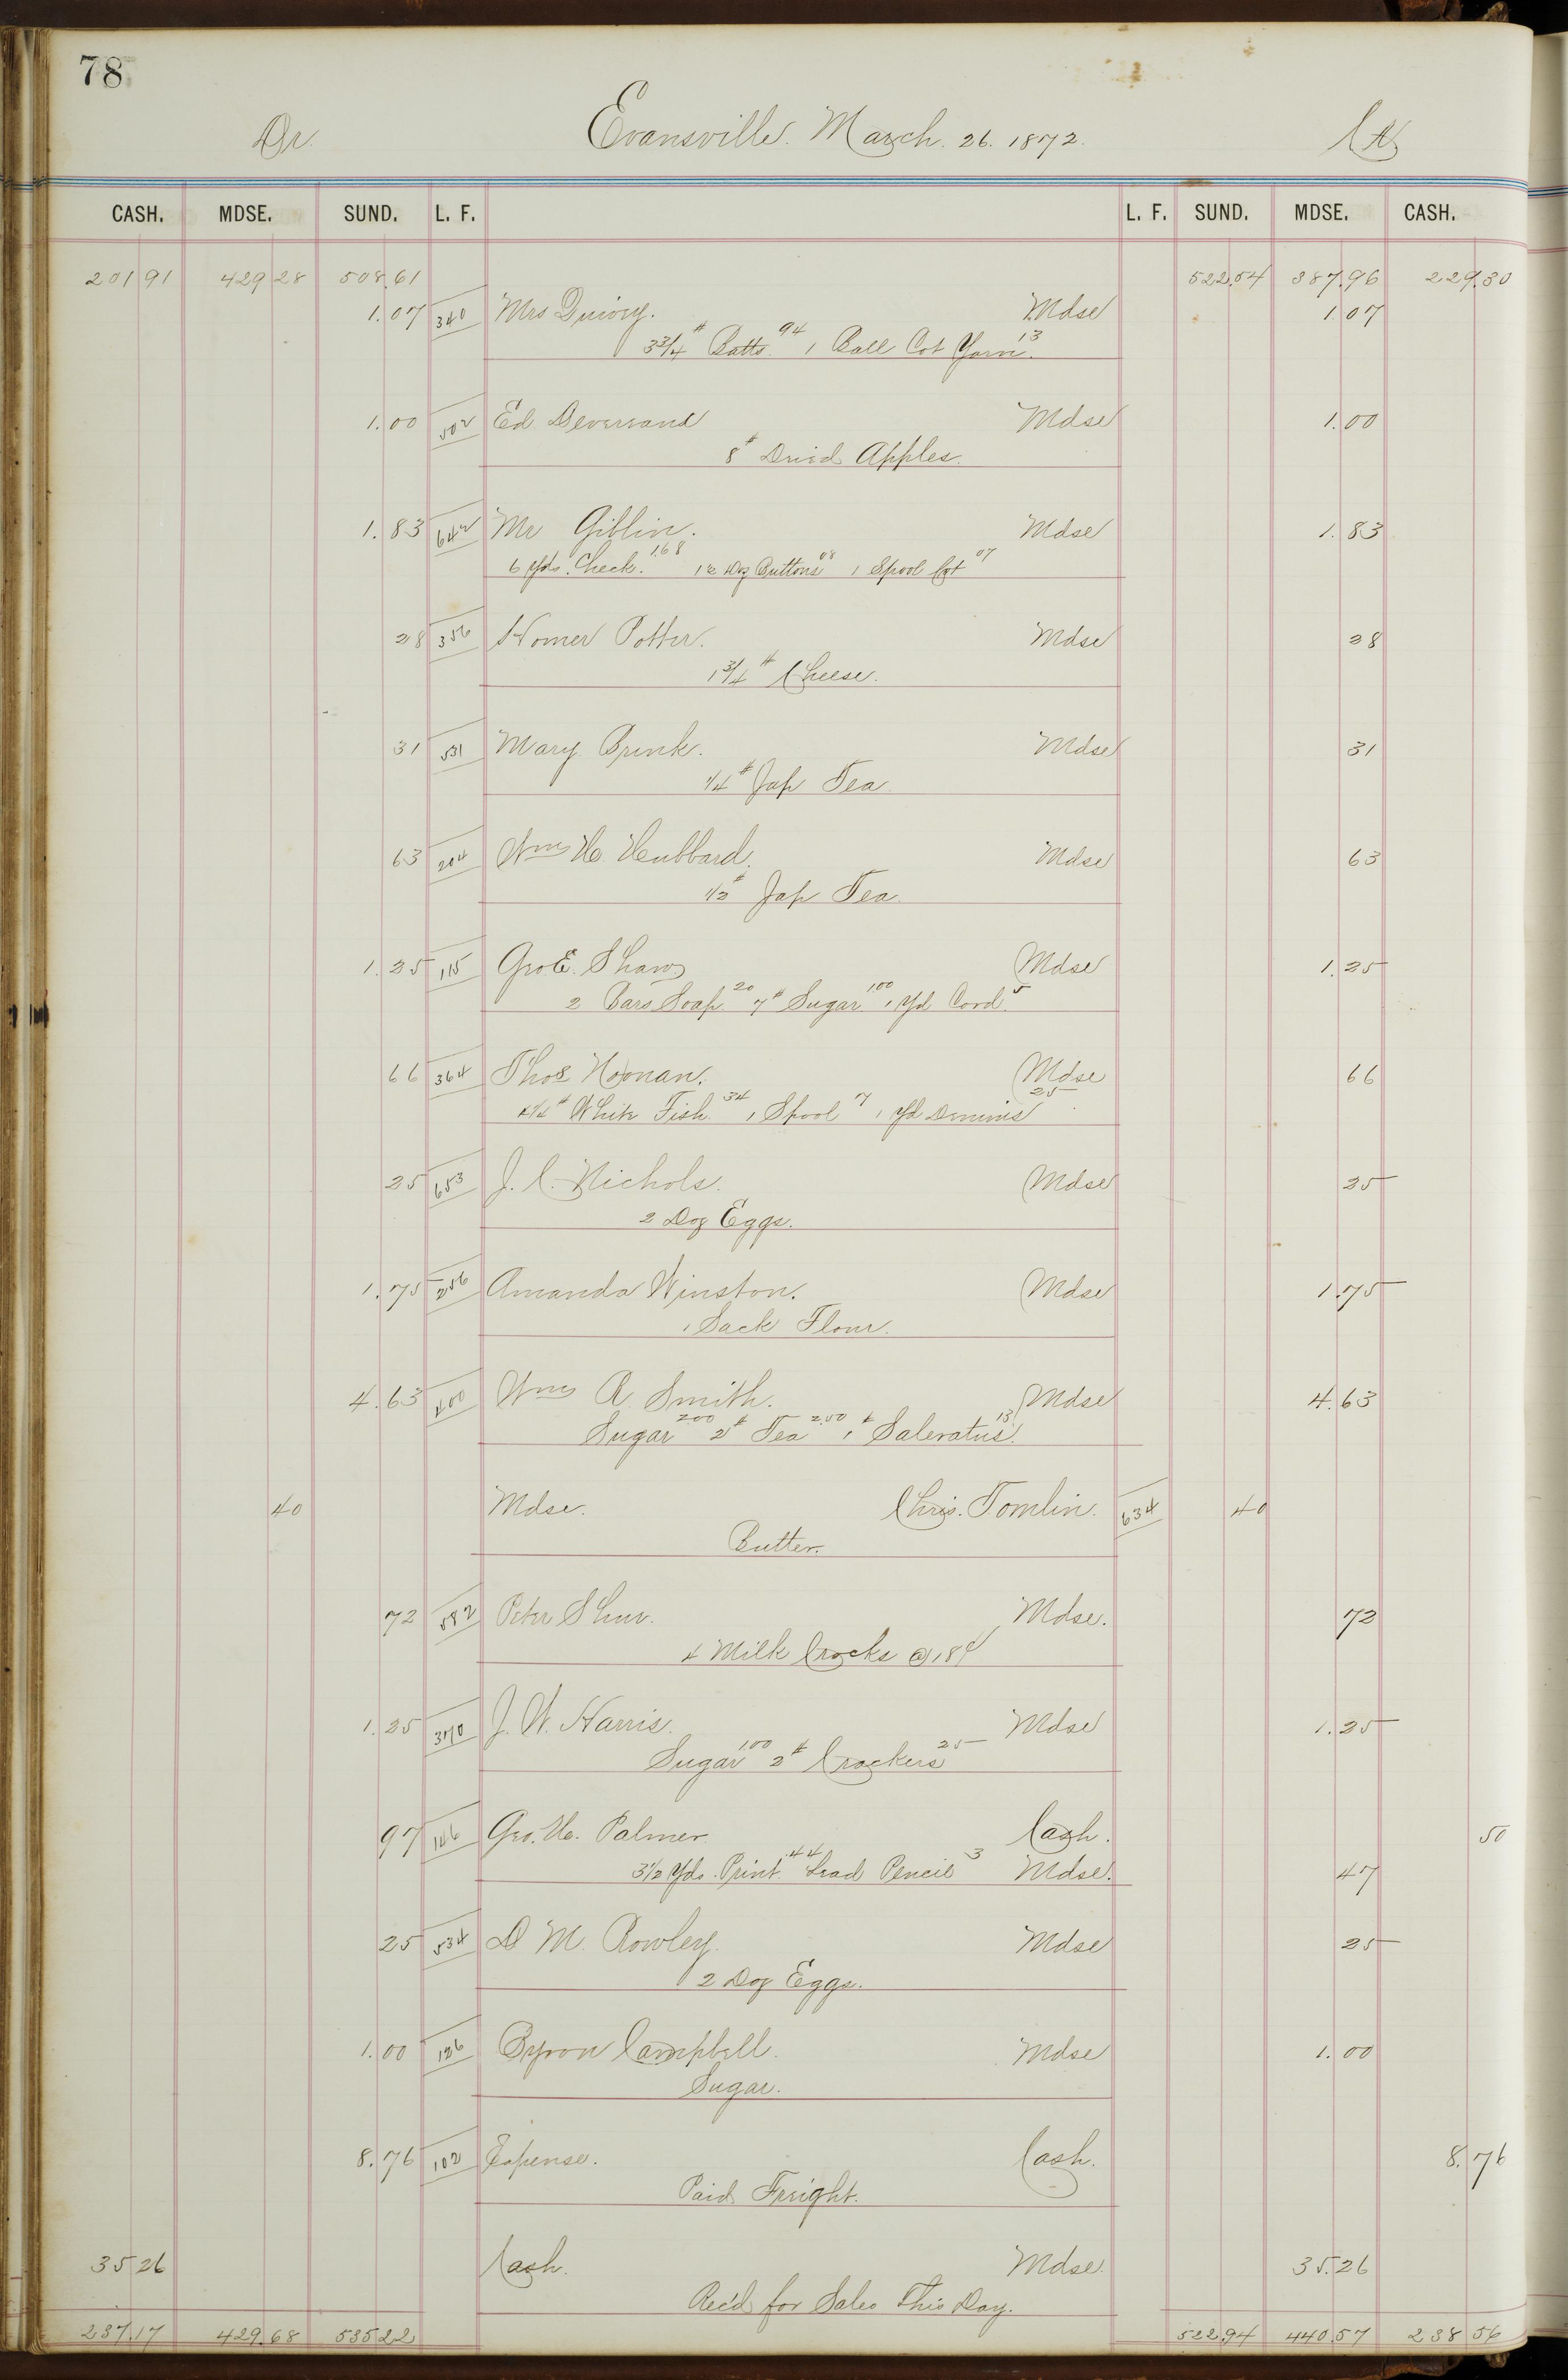 78
Dr. Evansville. March. 26. 1872. Cr
CASH. MDSE. SUND. L. F. L. F. SUND. MDSE. CASH.
201 91 429 28 508.61 522.54 387.96 229.30
1.07 340 Mrs Mdse 1.07
3 3/4 # Batts. 94 1 Ball Cot Yarn. 13
1.00 502 Ed Devereand Mdse 1.00
8 # Dried Apples.
1.83 642 Mr Giblin. Mdse 1.83
6 Yds. Check. 168 1 1/2 Doz Buttons 08 1 Spool Cot 07
28 356 Homer Potter. Mdse 28
1 3/4 # Cheese.
31 531 Mary Brink. Mdse 31
1/4 # Jap Tea
63 204 Wm H. Hubbard. Mdse 63
1/2 # Jap Tea.
1.25 115 Geo E. Shaw Mdse 1.25
2 Bars Soap. 20 7 # Sugar. 1.00 1 Yd Cord. 5
66 364 Thos Noonan. Mdse 66
4 1/4 # White Fish. 34 1 Spool 7 1 Yd Dennis 25
25 653 J. C. Nichols. Mdse 25
2 Doz Eggs.
1.75 256 Amanda Winston. Mdse 1.75
1 Sack Flour.
4.63 400 Wm R. Smith. Mdse 4.63
Sugar 2.00 2 # Tea 2.50 1 # Saleratus. 13
40 Mdse. Chris. Tomlin. 634 40
Butter.
72 582 Peter Shur. Mdse. 72
4 Milk Crocks @ 18¢
1.25 370 J. W. Harris. Mdse 1.25
Sugar 1.00 2 # Crackers 25
97 146 Geo. H. Palmer Cash. 50
3 1/2 Yds. Print. 44 Lead Pencil 3 Mdse. 47
25 534 D M. Rowley. Mdse 25
2 Doz Eggs.
1.00 126 Byron Campbell. Mdse 1.00
Sugar.
8.76 102 Expense. Cash. 8.76
Paid Freight.
35 26 Cash. Mdse. 35.26
Rec'd for Sales This Day.
237.17 429.68 535 22 522.94 440.57 238 56